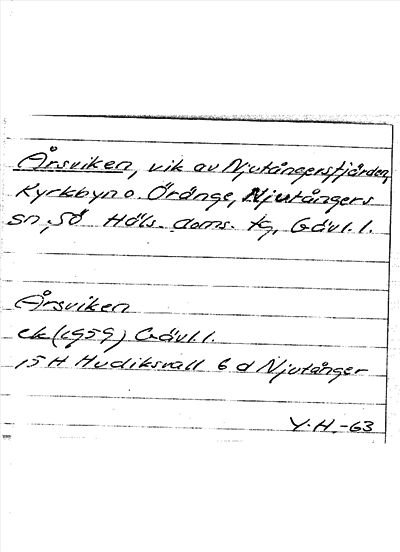 Årsviken, vik av Njutångersfjärden,
Kyrkbyn o. Öränge, Njutångers
sn, SÖ Häls. doms. tg, Gävl.l.
Årsviken
ek (1959) Gävl.l.
15 H Hudiksvall 6 d Njutånger
Y.H.-63